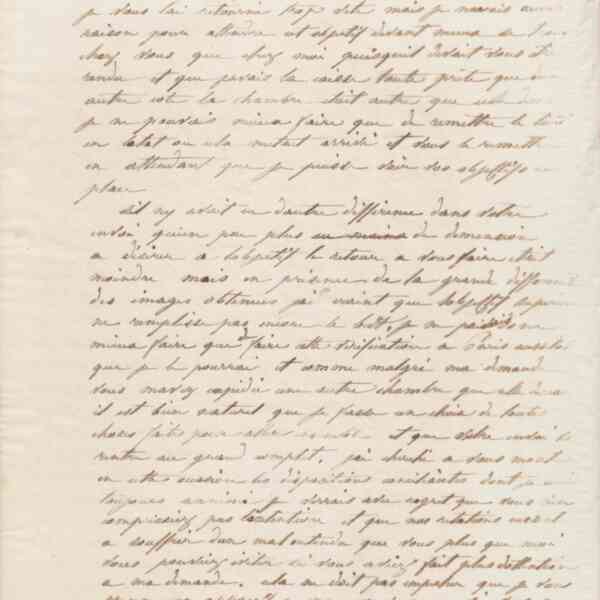 je vous l'ai retourné trop vite mais je n'avais aucune
raison pour attendre cet objectif devant mieux se
chez vous que chez moi puisqu'il devait vous être
rendu et que j'avais la caisse toute prete que
autre coté la chambre était autre que celle
je ne pouvais mieux faire que de remettre le tout
en l'état ou cela m'etait arrivé et vous le remettre
en attendant que je puisse voir vos objectifs en
place
s'il ny avait eu dautre différence dans votre
envoi qu'un peu plus ou moins de dimension
a désirer a lobjectif le retour a vous faire était
moindre mais en présence de la grande différence
des images obtenues j'ai craint que lobjectif
ne remplisse pas encore le but, je ne puis donc
mieux faire que de faire cette vérification a Paris aussitot
que je le pourrai et comme malgré ma demande
vous m'avez expédié une autre chambre que celle
il est bien naturel que je fasse un choix de toutes
choses faites pour aller ensemble et que votre envoi
rentre au grand complet. j'ai cherché a vous
en cette occasion les dispositions conciliantes dont je
toujours animé je verrais avec regret que vous n'en
compreniez pas l'intention et que nos relations
a souffrir d'un malentendu que vous plus que moi
vous pouviez éviter si vous aviez fait plus d'attention
a ma demande. cela ne doit pas empecher que je vous